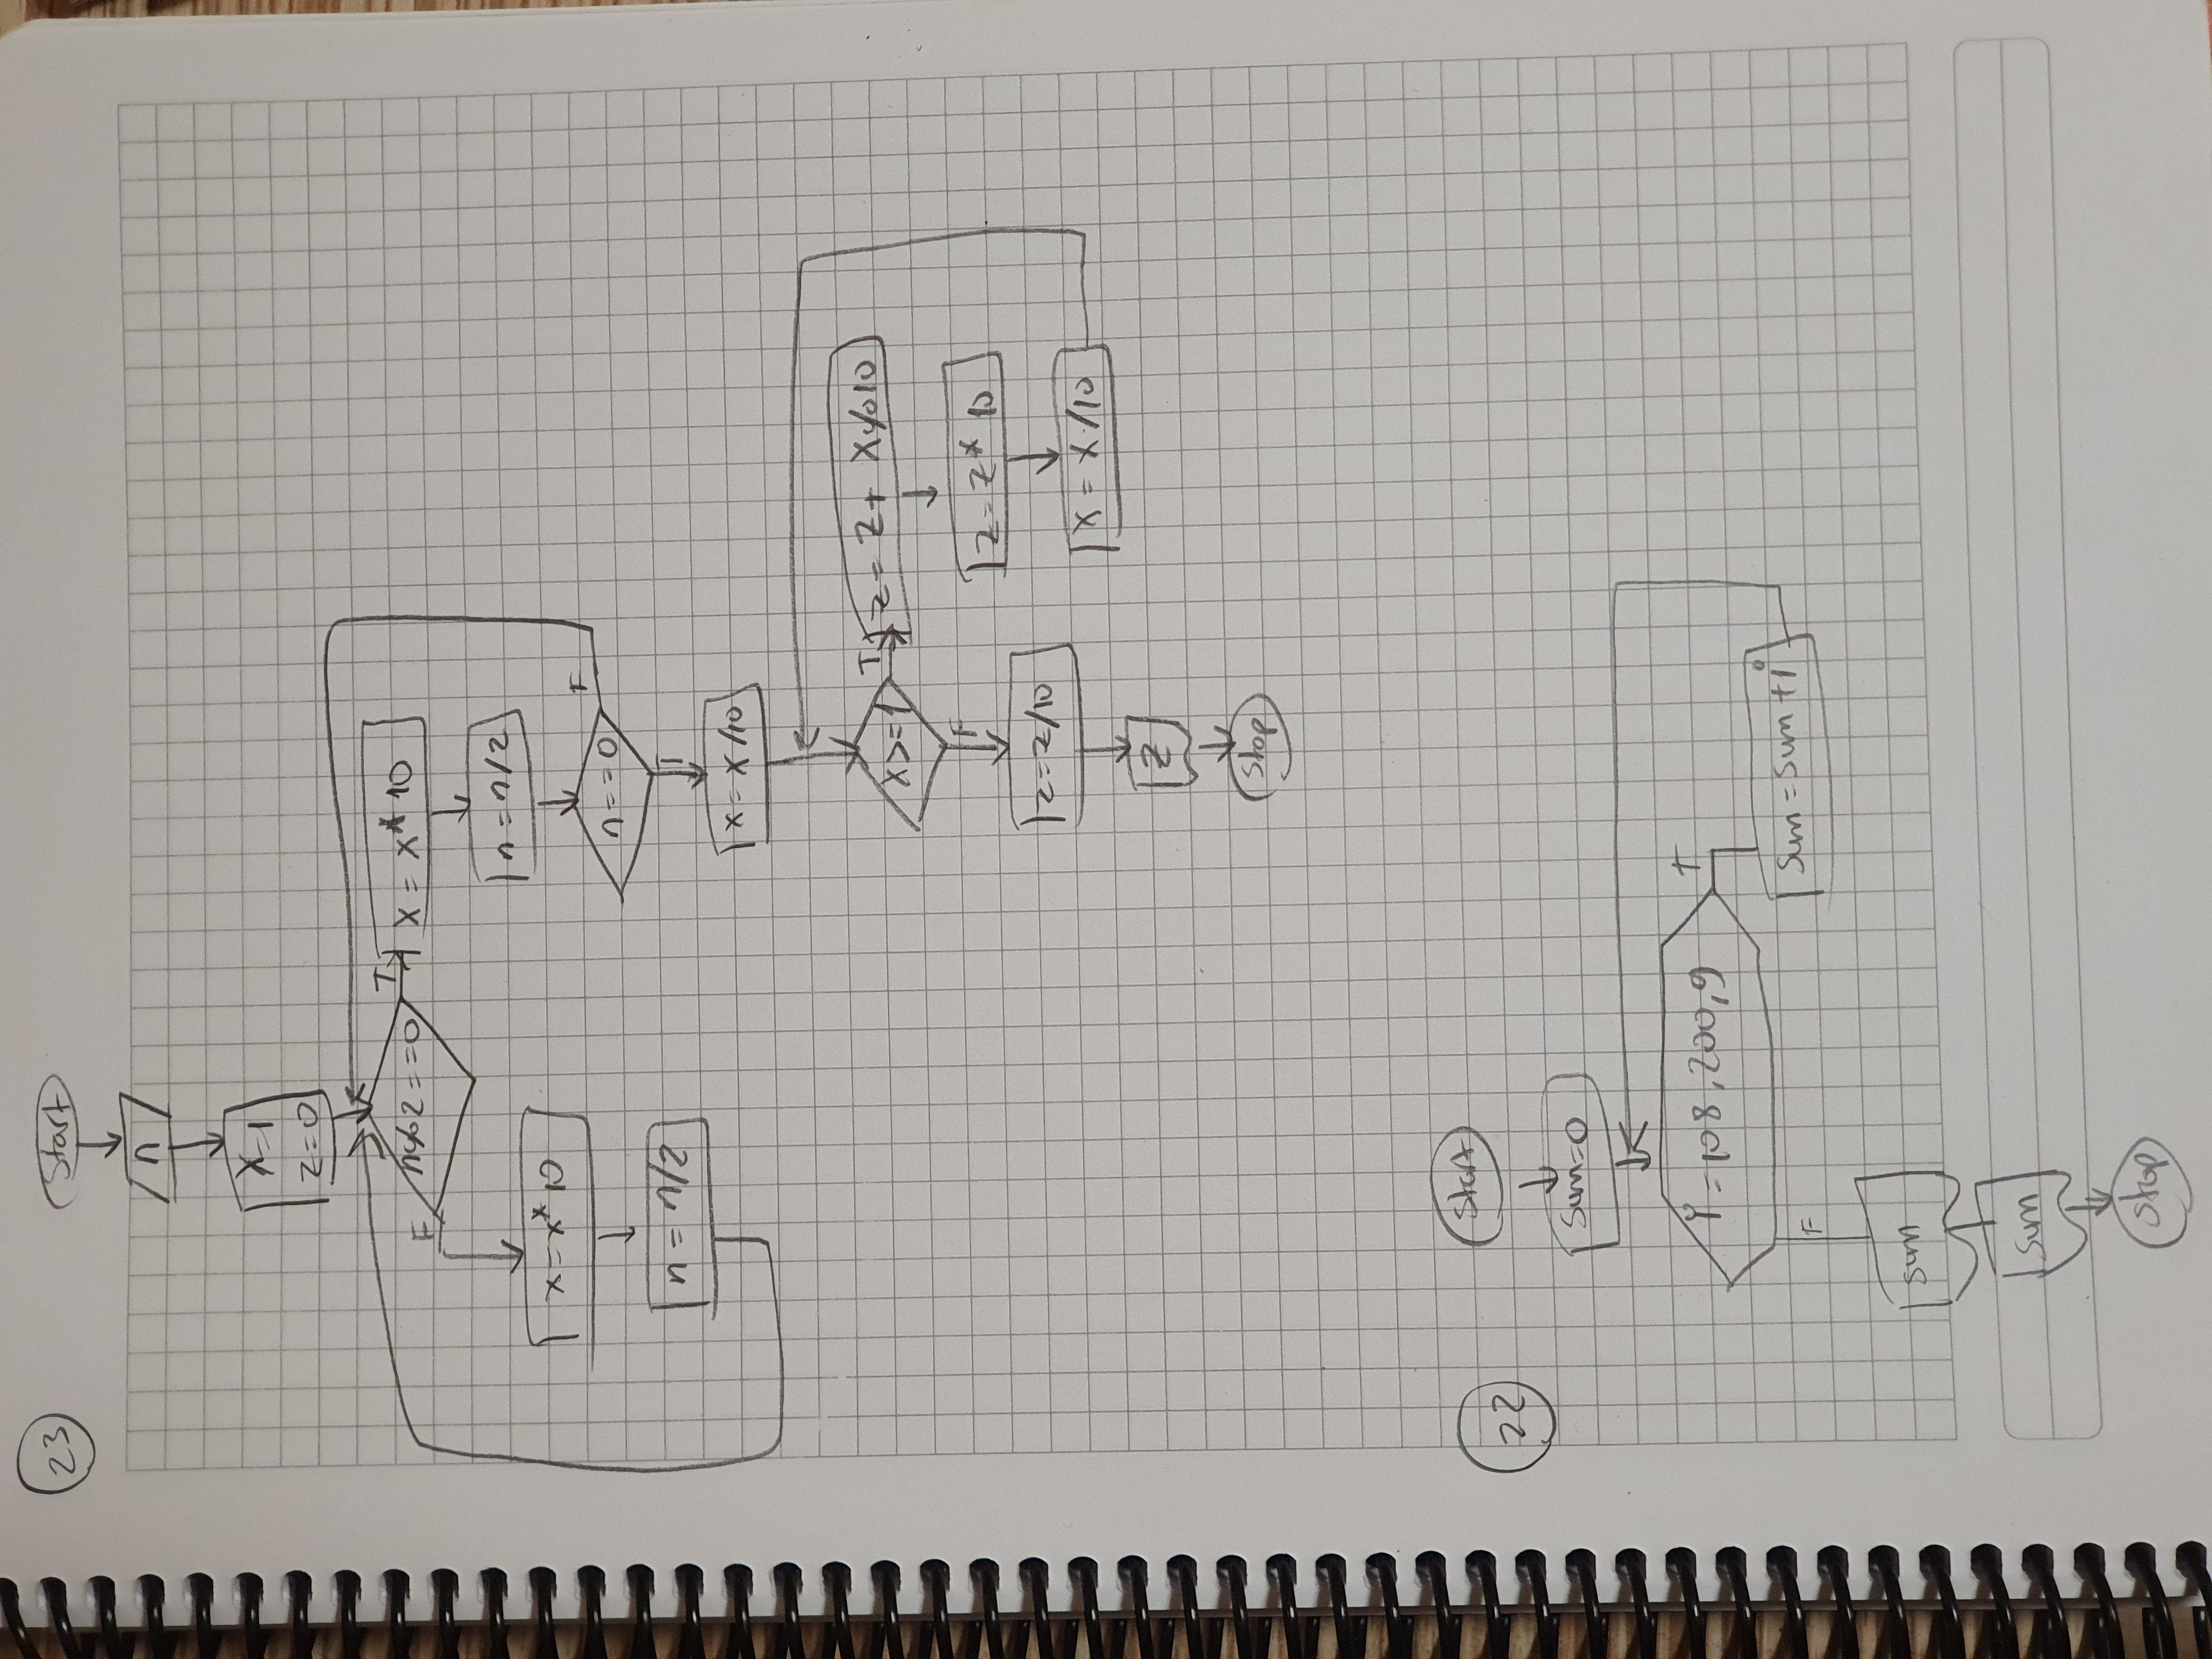 23
Start
n
x=1
z=0
n%2==0
T
x = x*10
F
n = n/2
x=x*10
n==0
F
n = n/2
T
x = x/10
x>=1
T
z= z+ x%10
F
z=z*10
z=z/10
x = x/10
z
Stop
22
Start
sum=0
i=108,200,9
T
sum=sum+i
F
sum
sum
Stop